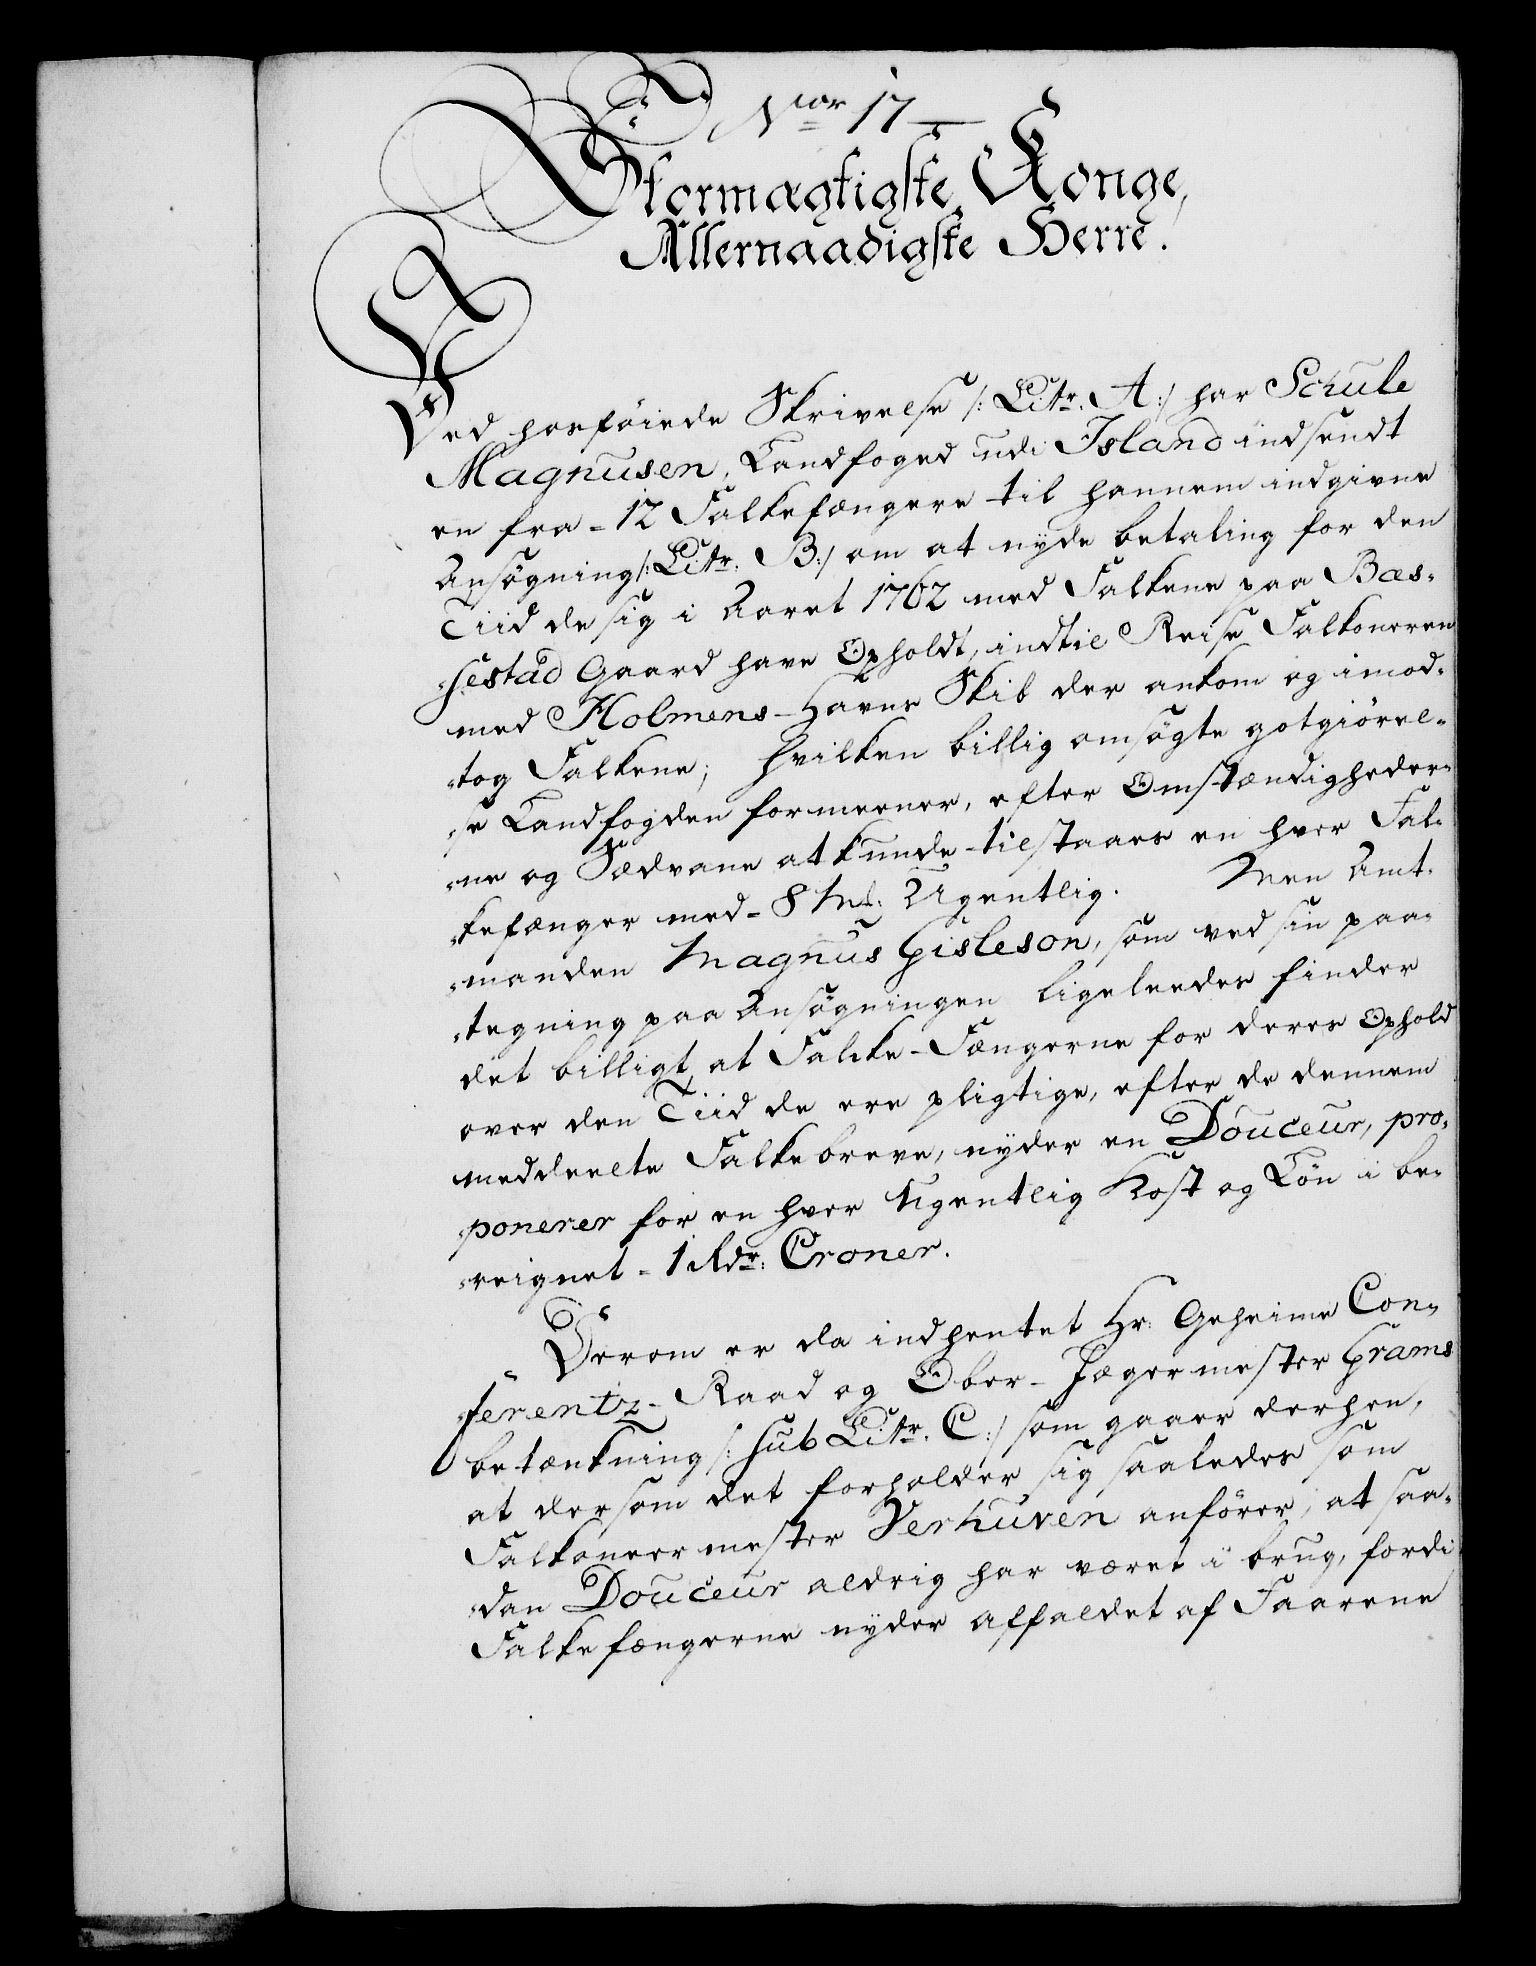 Nor 17
Stormægtigste Konge,
Allernaadigste Herre.
Ved hosföiede Skrivelse /: Litr. A :/ har Schule
Magnusen, Landfoged udi Island indsendt
en fra 12 Falkefængere til hannem indgivne
Ansøgning /: Litr. B :/ om at nyde betaling for den
Tiid de sig i Aaret 1762 med Falkene paa Bæs-
sestad Gaard have Opholdt, indtil Reise Falkoneren
med Holmens-Havns Skib der ankom og imod-
tog Falkene; hvilken billig omsøgte gotgiörel-
se Landfogden formeener, efter Omstændigheder-
ne og Sædvane at kunde tilstaaes en hver Fal-
kefænger med 8 Mk: Ugentlig. Men Amt-
manden Magnus Gisleson, som ved sin paa-
tegning paa Ansøgningen ligeleedes finder
det billigt, at Falcke-Fængerne for deres Ophold
over den Tiid de ere pligtige, efter de dennem
meddeelte Falkebreve, nyder en Douceur, pro-
ponerer for en hver Ugentlig Kost og Lön i be-
reignet 1 Rdr: Croner.
Derom er da indhentet Hr: Geheime Con-
ferentz-Raad og Ober-Jægermester Grams
betænkning /: sub Litr. C :/ som gaaer derhen,
at dersom det forholder sig saaledes som
Falkoneermester Verhuven anförer, at saa-
dan Douceur aldrig har været i brug, fordi
Falkefængerne nyder affaldet af Faarene